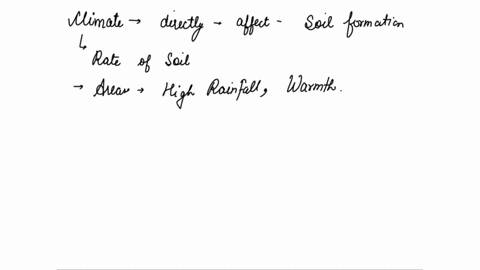 Climate → directly → affect - Soil formation
↳ Rate of Soil
→ Areas → High Rainfall, Warmth.